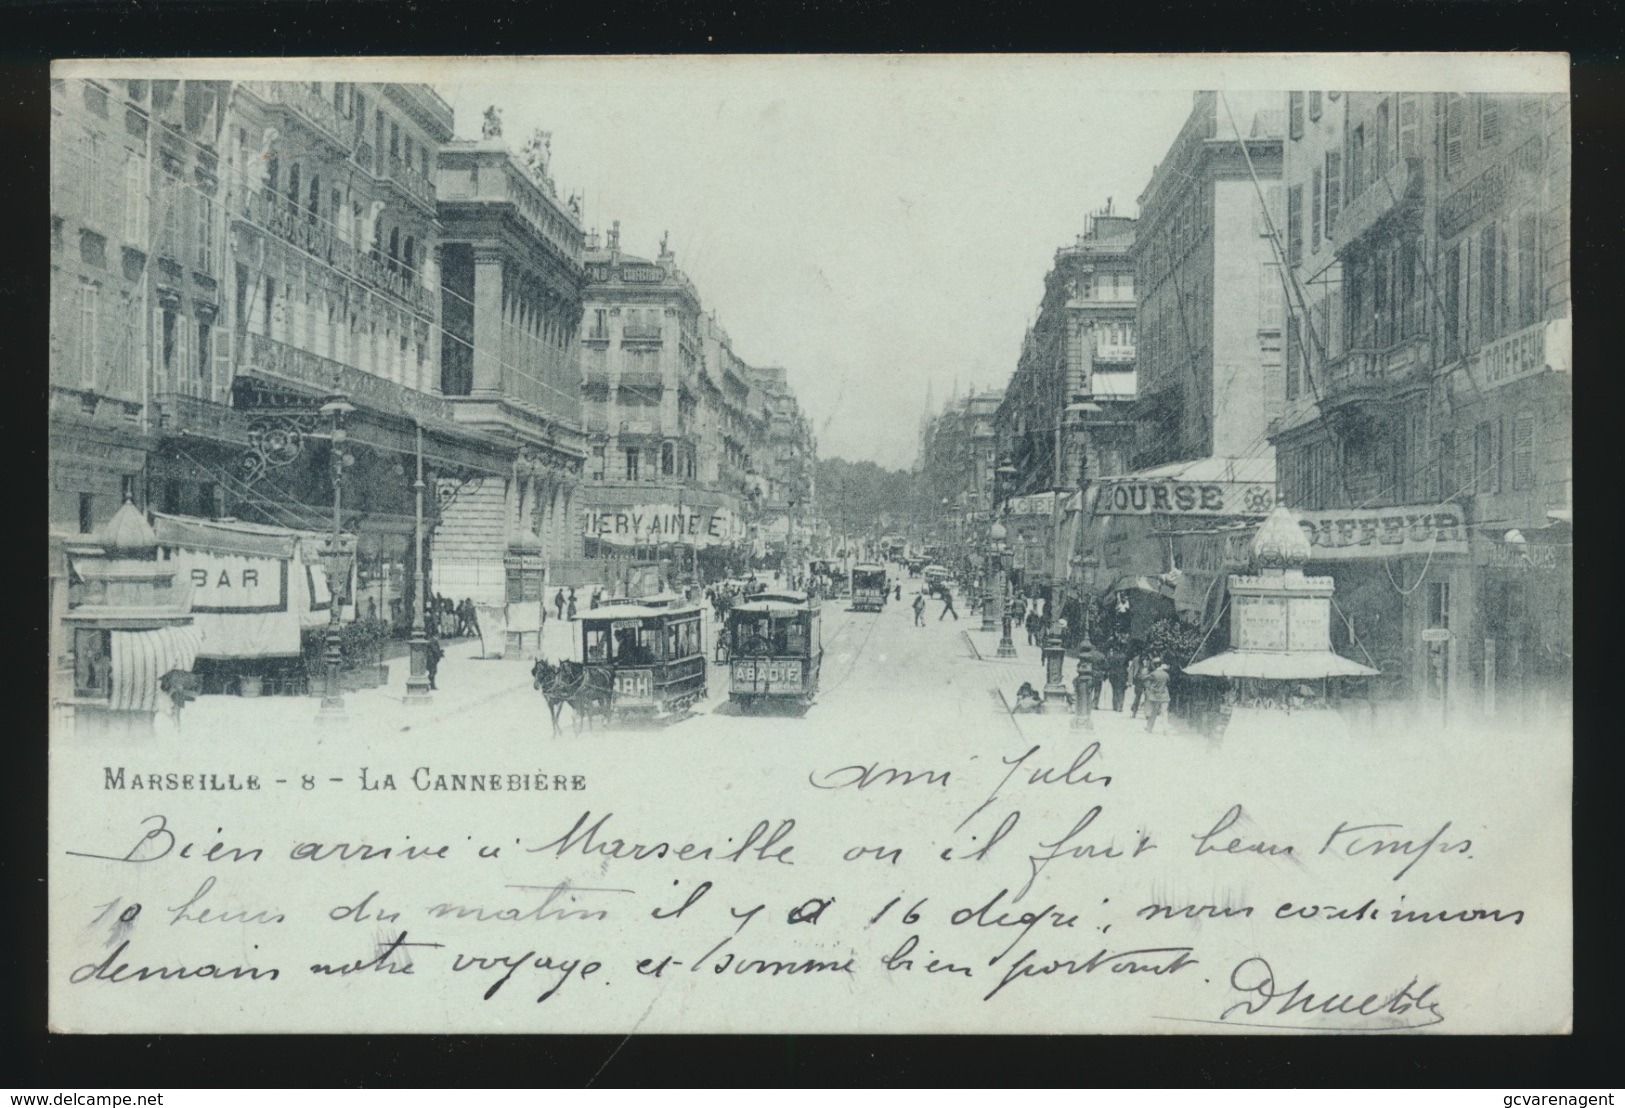 CONFECTIONS
COIFFEUR
BOURSE
COIFFEUR
BAR
ABADIE
MARSEILLE - 8 - LA CANNEBIÈRE
ami Jules
Bien arrivé à Marseille ou il fait beau temps.
10 heurs du matin il y a 16 degré, nous continuons
demain notre voyage et somme bien portant.
delcampe.net
gcvarenagent